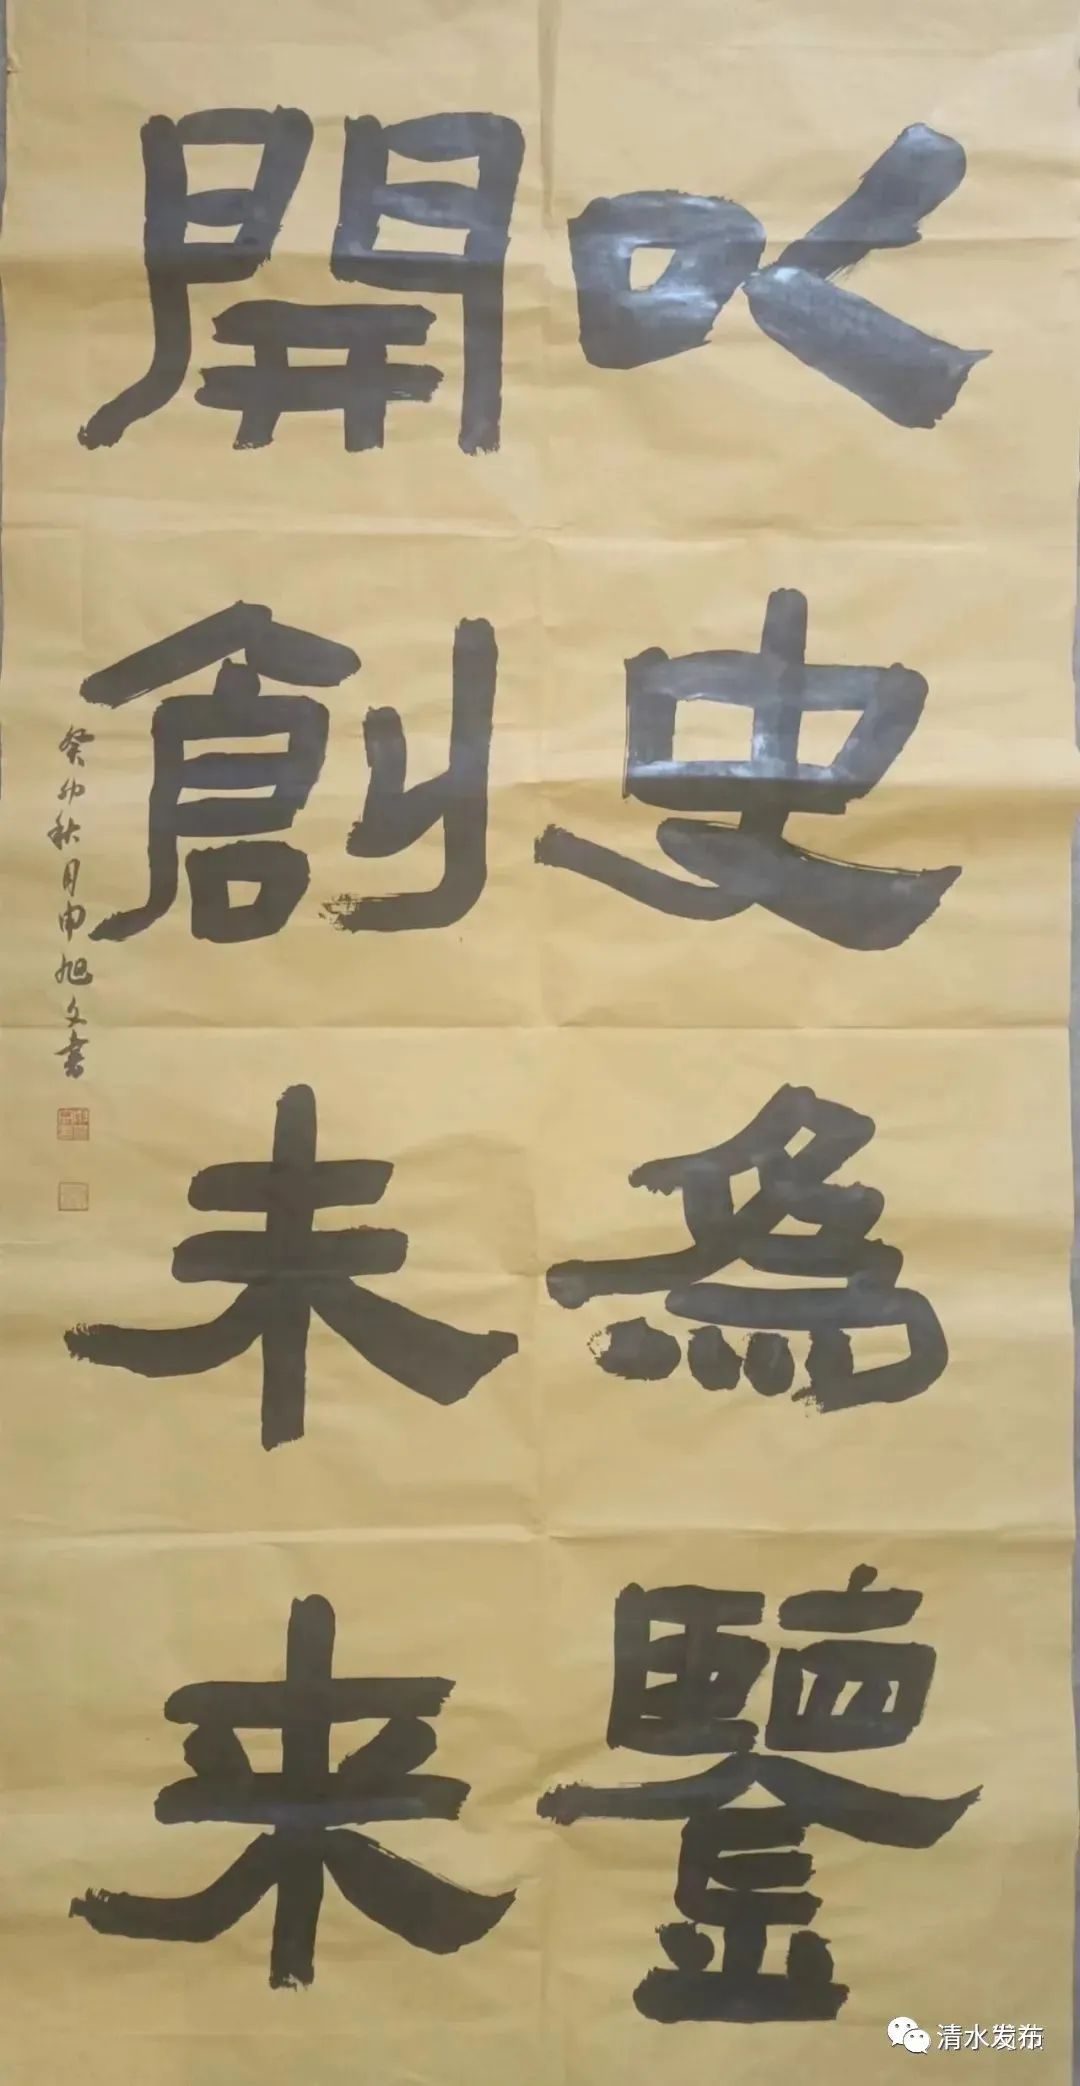 以史為鑒
開創未来
癸卯秋月申旭文書
清水发布